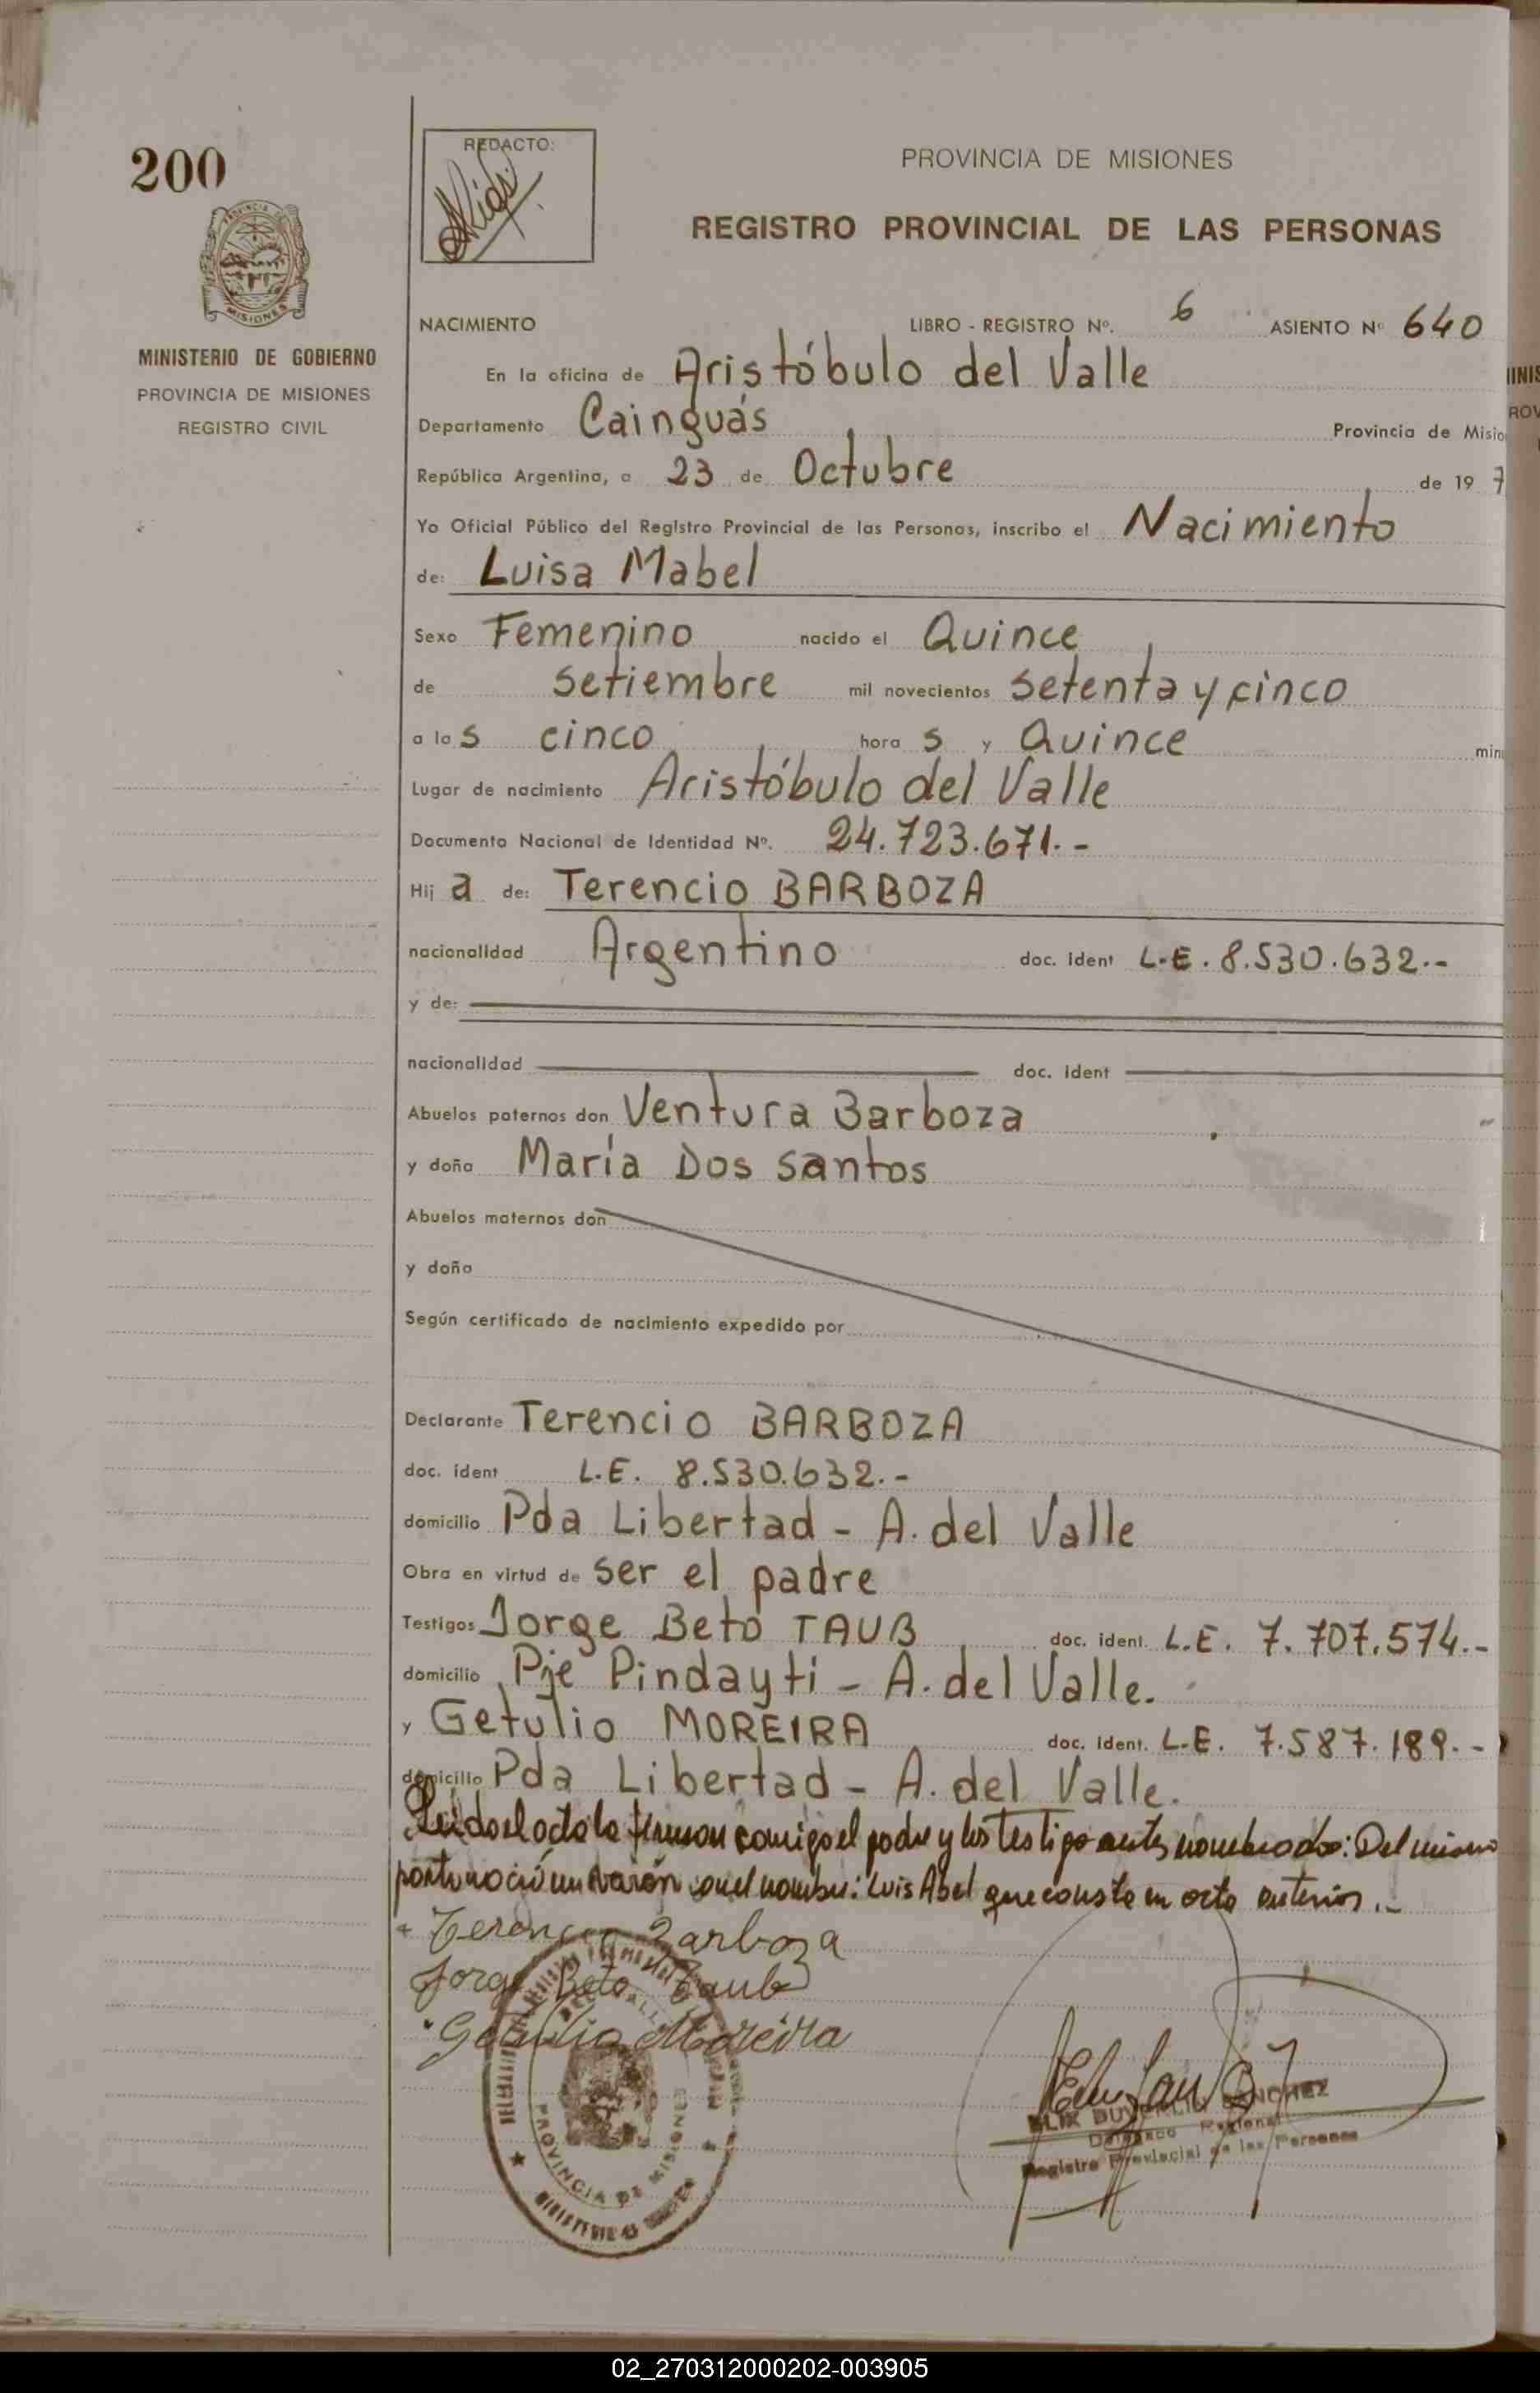 200
REDACTO:
PROVINCIA DE MISIONES
REGISTRO PROVINCIAL DE LAS PERSONAS
PROVINCIA DE
MISIONES
MINISTERIO DE GOBIERNO
PROVINCIA DE MISIONES
REGISTRO CIVIL
NACIMIENTO LIBRO - REGISTRO Nº. 6 ASIENTO Nº 640
En la oficina de Aristóbulo del Valle
Departamento Cainguás Provincia de Misio
República Argentina, a 23 de Octubre de 19 7
Yo Oficial Público del Registro Provincial de las Personas, inscribo el Nacimiento
de: Luisa Mabel
Sexo Femenino nacido el Quince
de setiembre mil novecientos setenta y cinco
a las cinco hora s y Quince min
Lugar de nacimiento Aristóbulo del Valle
Documento Nacional de Identidad Nº. 24.723.671.-
Hij a de: Terencio BARBOZA
nacionalidad Argentino doc. ident L.E. 8.530.632.-
y de:
nacionalidad doc. ident
Abuelos paternos don Ventura Barboza
y doña María Dos santos
Abuelos maternos don
y doña
Según certificado de nacimiento expedido por
Declarante Terencio BARBOZA
doc. ident L.E. 8.530.632.-
domicilio Pda Libertad - A. del Valle
Obra en virtud de ser el padre
Testigos Jorge Beto TAUB doc. ident. L.E. 7.707.574.-
domicilio Pje Pindayti - A. del Valle.
y Getulio MOREIRA doc. ident. L.E. 7.587.189.-
domicilio Pda Libertad - A. del Valle.
Leido el acta la firman conmigo el padre y los testigo antes nombrados: Del mismo
parto nació un varón con el nombre: Luis Abel que consta en acta anterior.-
Terencio Barboza
Jorge Beto Taub
Getulio Moreira
PROVINCIA DE MISIONES
SANCHEZ
Delegado Regional
Registro Provincial de las Personas
02_270312000202-003905